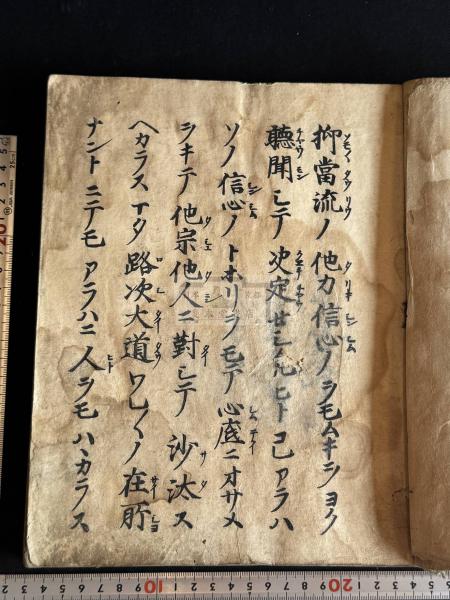 抑當流ノ他力信心ノヲモムキヲヨク
聽聞シテ决定セシムルヒト已アラハ
ソノ信心ノトホリヲモテ心底ニオサメ
ヲキテ他宗他人ニ對シテ沙汰ス
ヘカラスマタ路次大道ワレ〱ノ在所
ナントニテモアラハニ人ヲモハヽカラス